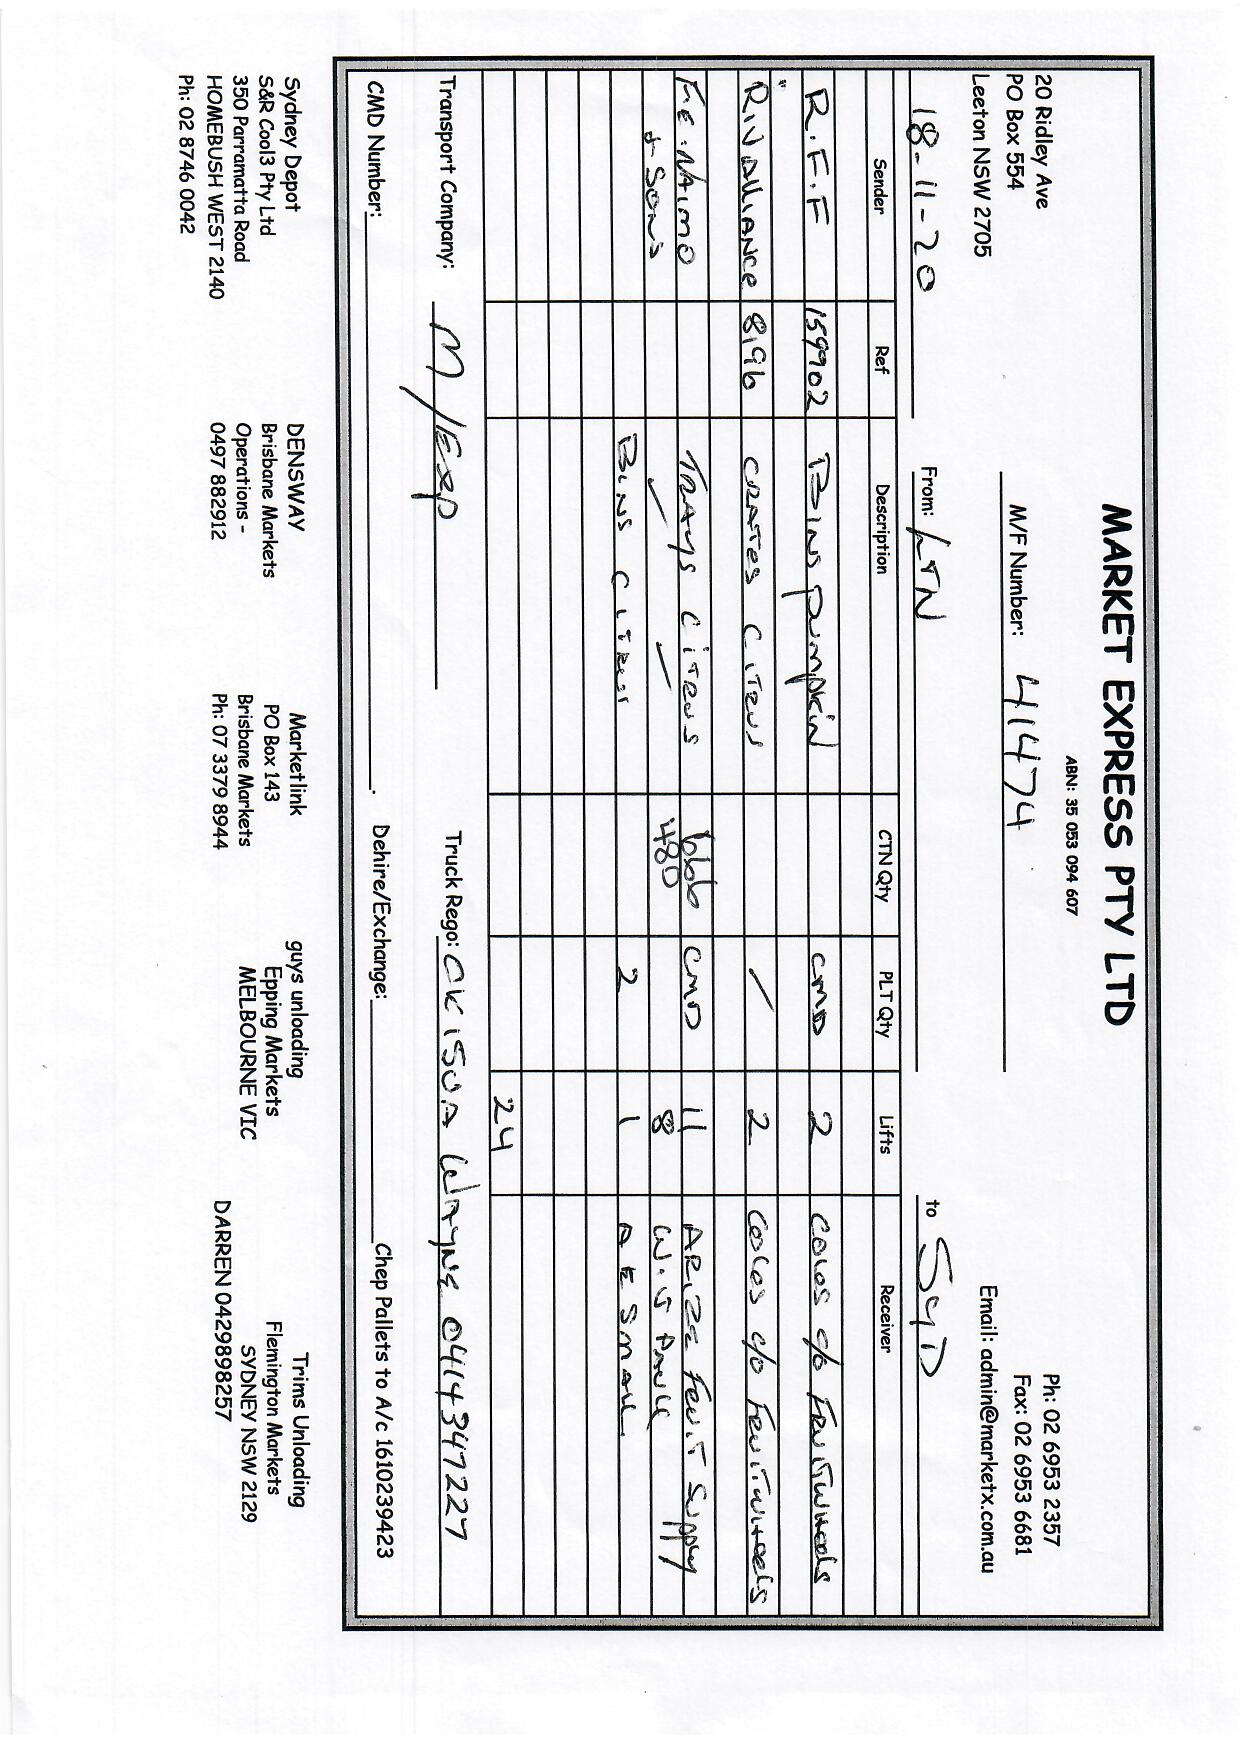 MARKET EXPRESS PTY LTD
ABN: 35 053 094 607
20 Ridley Ave
PO Box 554
Leeton NSW 2705
M/F Number: 41474
Ph: 02 6953 2357
Fax: 02 6953 6681
Email: admin@marketx.com.au
18-11-20 From: LTN to SYD
Sender Ref Description CTN Qty PLT Qty Lifts Receiver
R.F.F 159902 Bins pumpkin CMD 2 Coles c/o Fruitwheels
RivAlliance 8196 CRATES CITRUS / 2 Coles c/o Fruitwheels
NAIMO TRAYS CITRUS 666 CMD 11 ARIZE FRUIT Supply
& SONS 480 8
BINS CITRUS 2 1 A E SMALL
24
Transport Company: M/Exp Truck Rego: CK15UA WAYNE 0414347227
CMD Number: Dehire/Exchange: Chep Pallets to A/c 1610239423
Sydney Depot
S&R Cool3 Pty Ltd
350 Parramatta Road
HOMEBUSH WEST 2140
Ph: 02 8746 0042
DENSWAY
Brisbane Markets
Operations -
0497 882912
Marketlink
PO Box 143
Brisbane Markets
Ph: 07 3379 8944
guys unloading
Epping Markets
MELBOURNE VIC
Trims Unloading
Flemington Markets
SYDNEY NSW 2129
DARREN 0429898257